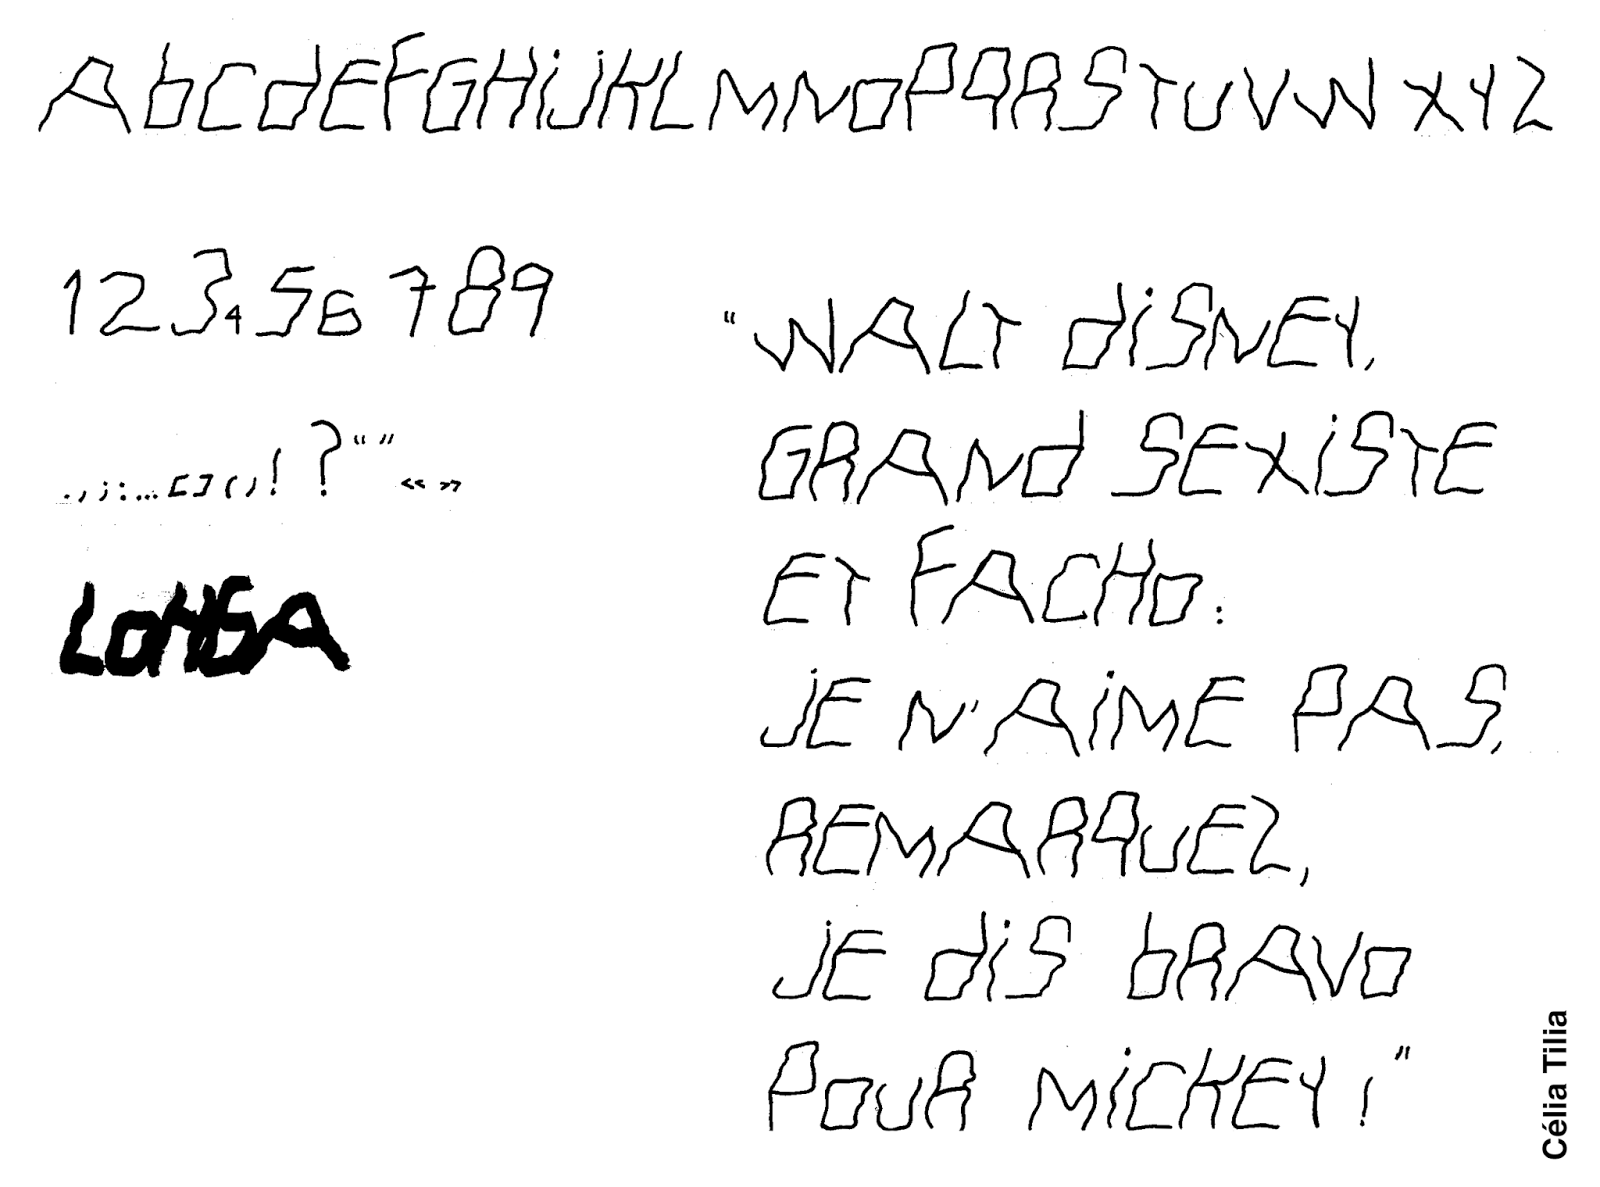 AbCdEFGHiJKLMNOPQRSTUVWXYZ
123456789
.,;:...[]()!?“”«»
LOHGA
“WALT diSNEY,
GRANd SEXiSTE
ET FACHO:
JE N'AiME PAS,
REMARQUEZ,
JE diS bRAVO
POUR MiCKEY!”
Célia Tilia